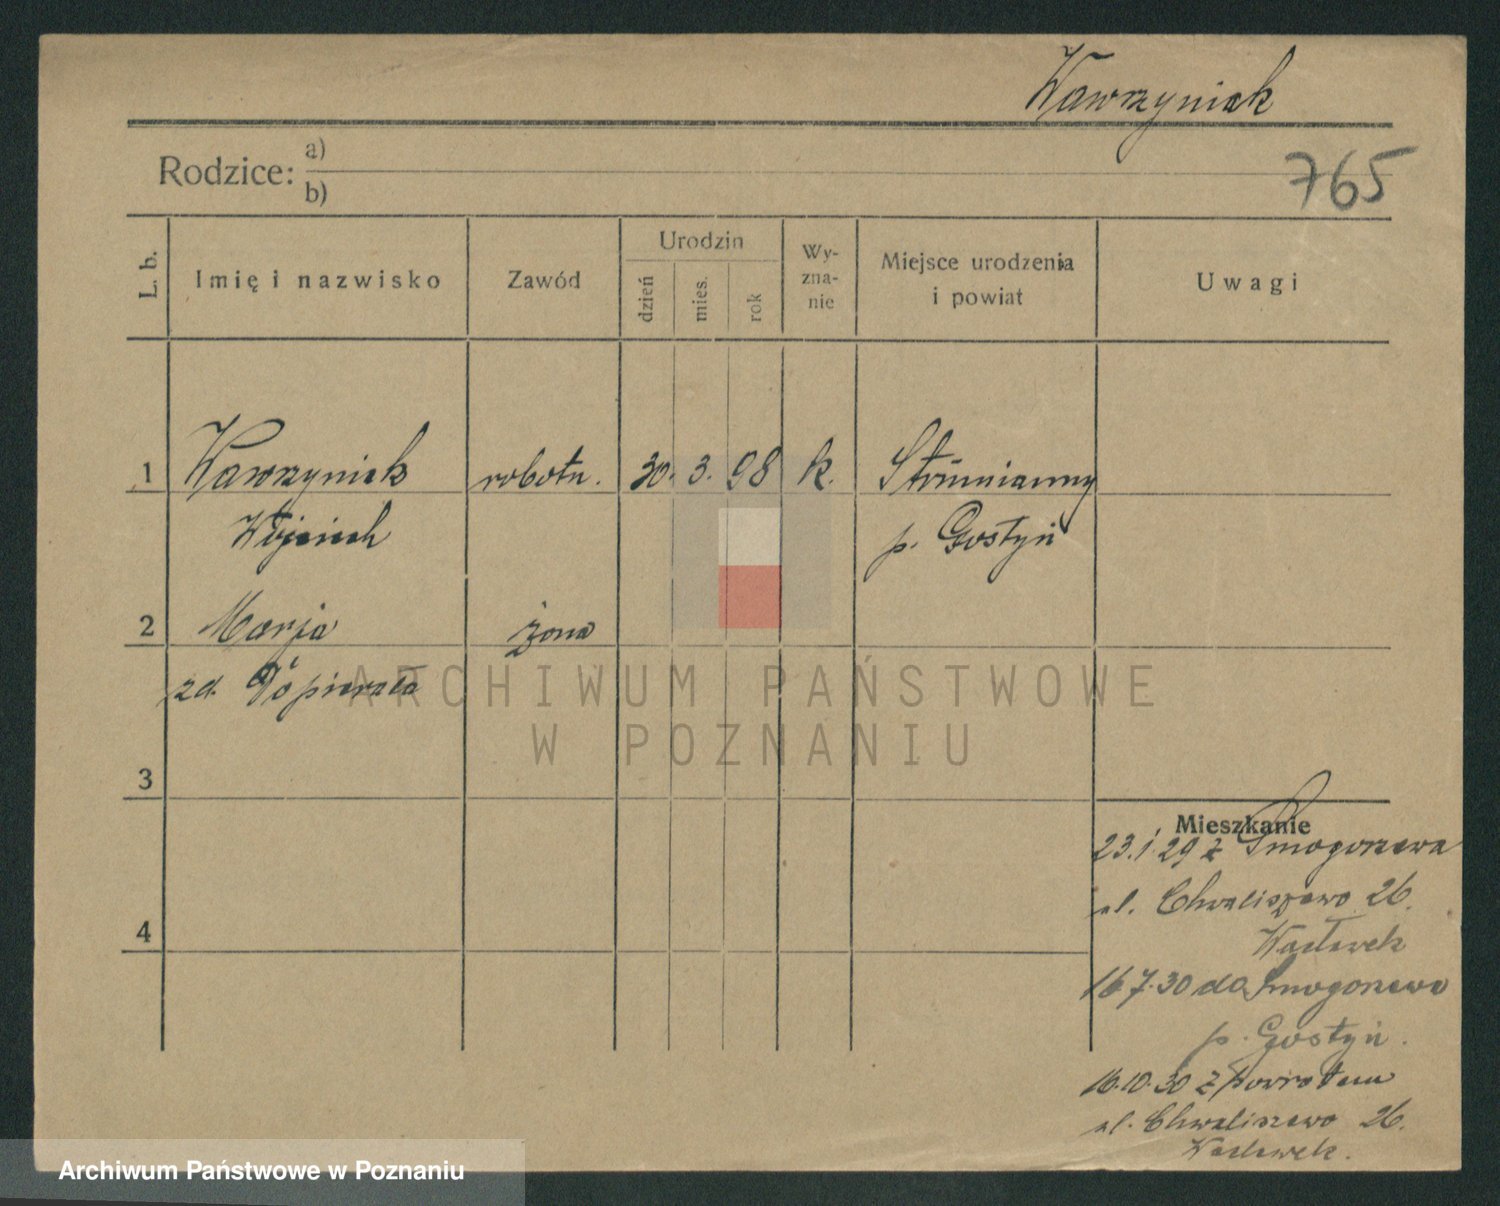 Wawrzyniak
765
Rodzice: a)
b)
L. b. Imię i nazwisko Zawód Urodzin dzień mies. rok Wy-zna-nie Miejsce urodzenia i powiat Uwagi
1 Wawrzyniak robotn. 30. 3. 98 k. Strumianny
Wojciech p. Gostyń
2 Marja żona
zd. Popierała
3
4
Mieszkanie
23.1.29 z Smogorzewa
ul. Chwaliszewo 26.
Wacławek
16.7.30 do Smogorzewo
p. Gostyń.
16.10.30 z powrotem
ul. Chwaliszewo 26.
Wacławek.
ARCHIWUM PAŃSTWOWE
W POZNANIU
Archiwum Państwowe w Poznaniu